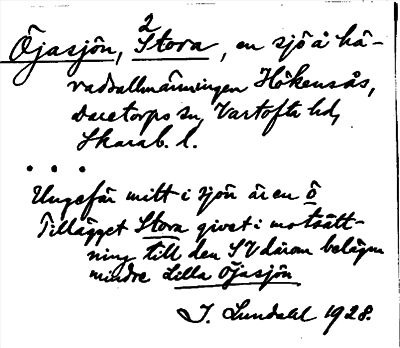 Öjasjön, 2 Stora, en sjö å hä-
radsallmänningen Hökensås,
Daretorps sn, Vartofta hd,
Skarab. l.
. . .
Ungefär mitt i sjön är en ö
Tillägget Stora givet i motsätt-
ning till den SV därom belägna
mindre Lilla Öjasjön
J. Lundahl 1928.